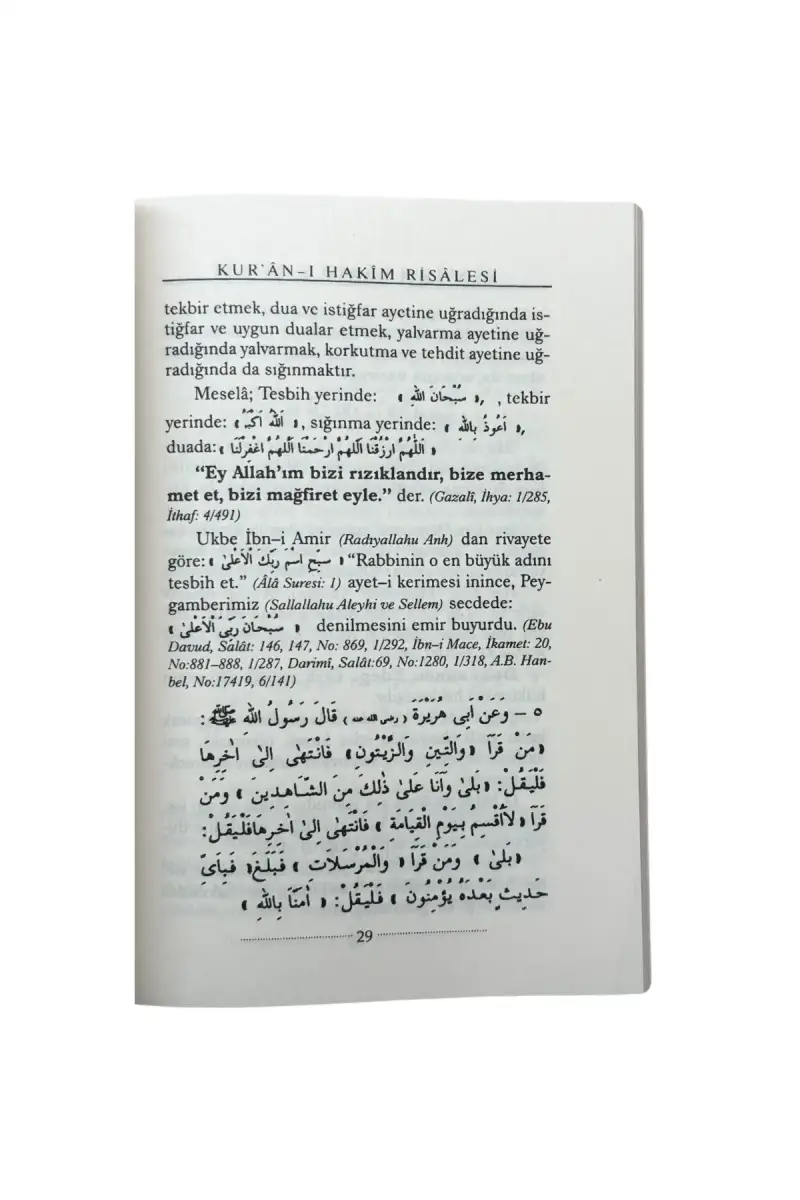 KUR'ÂN–I HAKÎM RİSÂLESİ
tekbir etmek, dua ve istiğfar ayetine uğradığında is-
tiğfar ve uygun dualar etmek, yalvarma ayetine uğ-
radığında yalvarmak, korkutma ve tehdit ayetine uğ-
radığında da sığınmaktır.
Meselâ; Tesbih yerinde: « سُبْحَانَ اللهِ », , tekbir
yerinde: « اَللهُ اَكْبَرُ », sığınma yerinde: « اَعُوذُ بِاللهِ »,
duada: « اَللّٰهُمَّ ارْزُقْنَا اَللّٰهُمَّ ارْحَمْنَا اَللّٰهُمَّ اغْفِرْلَنَا »
“Ey Allah’ım bizi rızıklandır, bize merha-
met et, bizi mağfiret eyle.” der. (Gazalî, İhya: 1/285,
İthaf: 4/491)
Ukbe İbn–i Amir (Radıyallahu Anh) dan rivayete
göre: « سَبِّحِ اسْمَ رَبِّكَ الْاَعْلٰىۙ » “Rabbinin o en büyük adını
tesbih et.” (Âlâ Suresi: 1) ayet–i kerimesi inince, Pey-
gamberimiz (Sallallahu Aleyhi ve Sellem) secdede:
« سُبْحَانَ رَبِّىَ الْاَعْلٰى » denilmesini emir buyurdu. (Ebu
Davud, Salât: 146, 147, No: 869, 1/292, İbn–i Mace, İkamet: 20,
No:881–888, 1/287, Darimî, Salât:69, No:1280, 1/318, A.B. Han-
bel, No:17419, 6/141)
٥ – وَعَنْ اَبِى هُرَيْرَةَ (رضى الله عنه) قَالَ رَسُولُ اللهِ ﷺ :
«مَنْ قَرَاَ «وَالتِّينِ وَالزَّيْتُونِ» فَانْتَهٰى اِلٰى اٰخِرِهَا
فَلْيَقُلْ: «بَلٰى وَاَنَا عَلٰى ذٰلِكَ مِنَ الشَّاهِدِينَ» وَمَنْ
قَرَاَ «لَا اُقْسِمُ بِيَوْمِ الْقِيَامَةِ» فَانْتَهٰى اِلٰى اٰخِرِهَا فَلْيَقُلْ:
«بَلٰى» وَمَنْ قَرَاَ «وَالْمُرْسَلَاتِ» فَبَلَغَ «فَبِاَىِّ
حَدِيثٍ بَعْدَهُ يُؤْمِنُونَ» فَلْيَقُلْ: «اٰمَنَّا بِاللهِ»
29